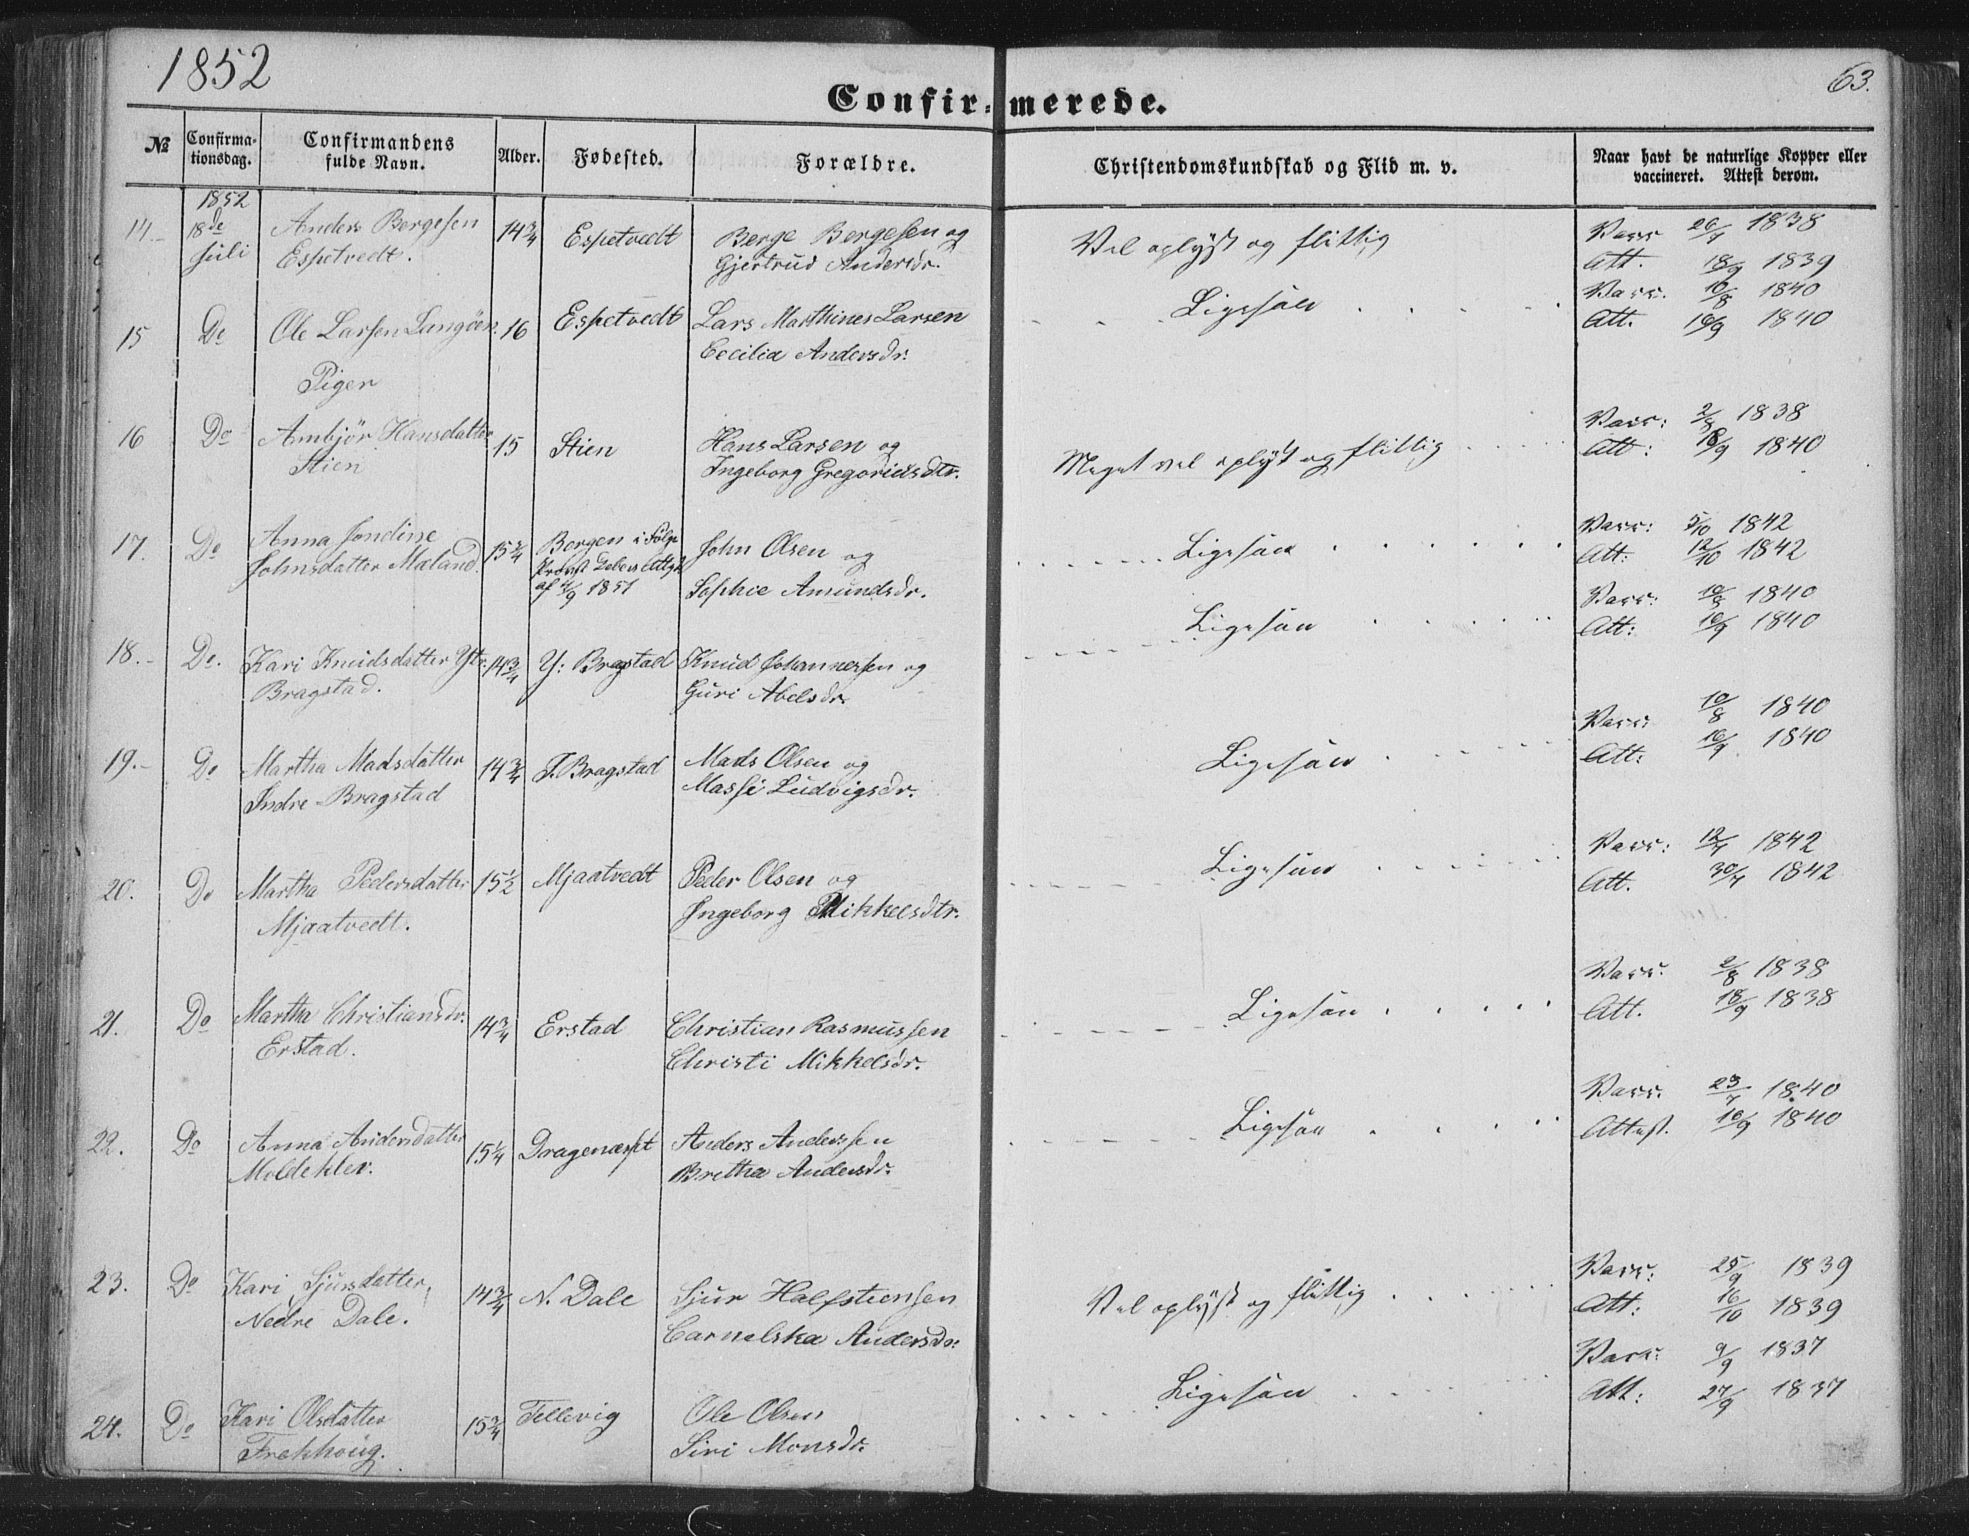 1852
63.
Confir- merede.
No Confirma-tionsdag. Confirmandens fulde Navn. Alder. Fødested. Forældre. Christendomskundskab og Flid m. v. Naar havt de naturlige Kopper eller vaccineret. Attest derom.
1852
14. 18de Anders Bergesen 14 3/4 Espetvedt Berge Bergesen og Vel oplyst og flittig Vacc 1838
Juli Espetvedt. Gjertrud Andersdr. Att. 18/9 1839
15 Do Ole Larsen Langöen 16 Espetvedt Lars Marthines Larsen Ligesaa Vacc. 10/8 1840
Cecilia Andersdr. Att. 16/9 1840
Piger
16 Do Ambjör Hansdatter 15 Stien Hans Larsen og Meget vel oplyst og flittig Vacc: 2/8 1838
Stien Ingeborg Gregoriusdtr. Att: 18/9 1840
17. Do Anna Jondine 15 3/4 Bergen i Følge John Olsen og Ligesaa Vacc: 5/10 1842
Johnsdatter Mæland. Provst
af 1851 Sophie Amundsdr. Att: 12/10 1842
18. Do. Kari Knudsdatter Ytr. 14 3/4 Y: Bragstad Knud Johannessen og Ligesaa Vacc: 10/8 1840
Bragstad. Guri Abelsdr. Att: 16/9 1840
19. Do Martha Madsdatter 14 3/4 I. Bragstad Mads Olsen og Ligesaa Vacc: 10/8 1840
Indre Bragstad Massi Ludvigsdr. Att: 16/9 1840
20. Do Martha Pedersdatter 15 1/2 Mjaatvedt Peder Olsen og Ligesaa Vacc: 12/4 1842
Mjaatvedt. Ingeborg Mikkelsdtr. Att. 30/4 1842
21. Do Martha Christiansdr. 14 3/4 Erstad Christian Rasmussen Ligesaa Vacc. 2/8 1838
Erstad. Christi Mikkelsdr. Att. 18/9 1838
22. Do Anna Andersdatter 15 1/4 Dragenæsset Anders Anderssen Ligesaa Vacc. 23/7 1840
Moldeklev. Bretha Andersdr. Attest. 16/9 1840
23. Do Kari Sjursdatter 14 3/4 N. Dale Sjur Halfstensen Vel oplyst og flittig Vacc: 25/9 1839
Nedre Dale. Carnelska Andersdr. Att: 16/10 1839
24. Do Kari Olsdatter 15 3/4 Tellevig Ole Olsen Ligesaa Vacc: 9/9 1837
Frekhoug. Siri Monsdr. Att: 27/9 1837